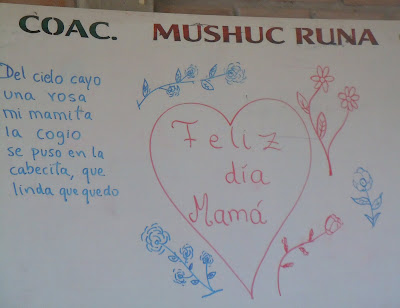 COAC. MUSHUC RUNA
Del cielo cayo
una rosa
mi mamita
la cogio
se puso en la
cabecita, que
linda que quedo
Feliz
día
Mamá